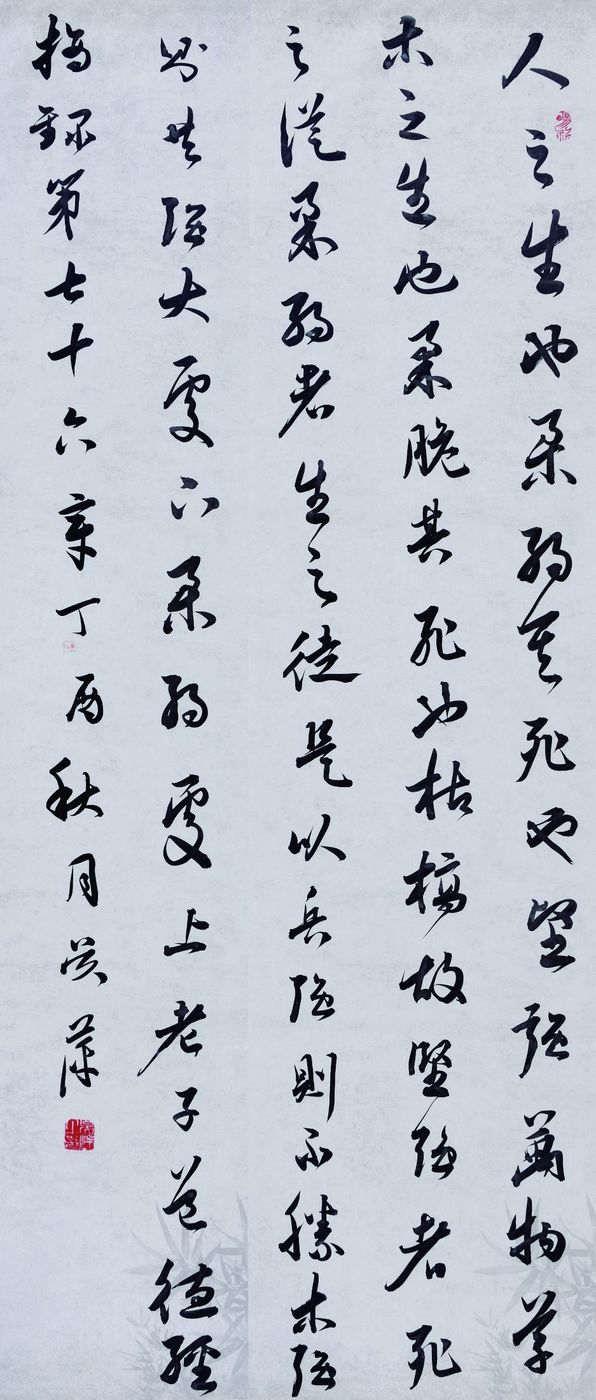 人之生也柔弱其死也堅强萬物草
木之生也柔脆其死也枯槁故堅强者死
之從柔弱者生之徒是以兵强則不勝木强
則共强大處下柔弱處上老子道德經
摘録第七十六章丁酉秋月吴萍